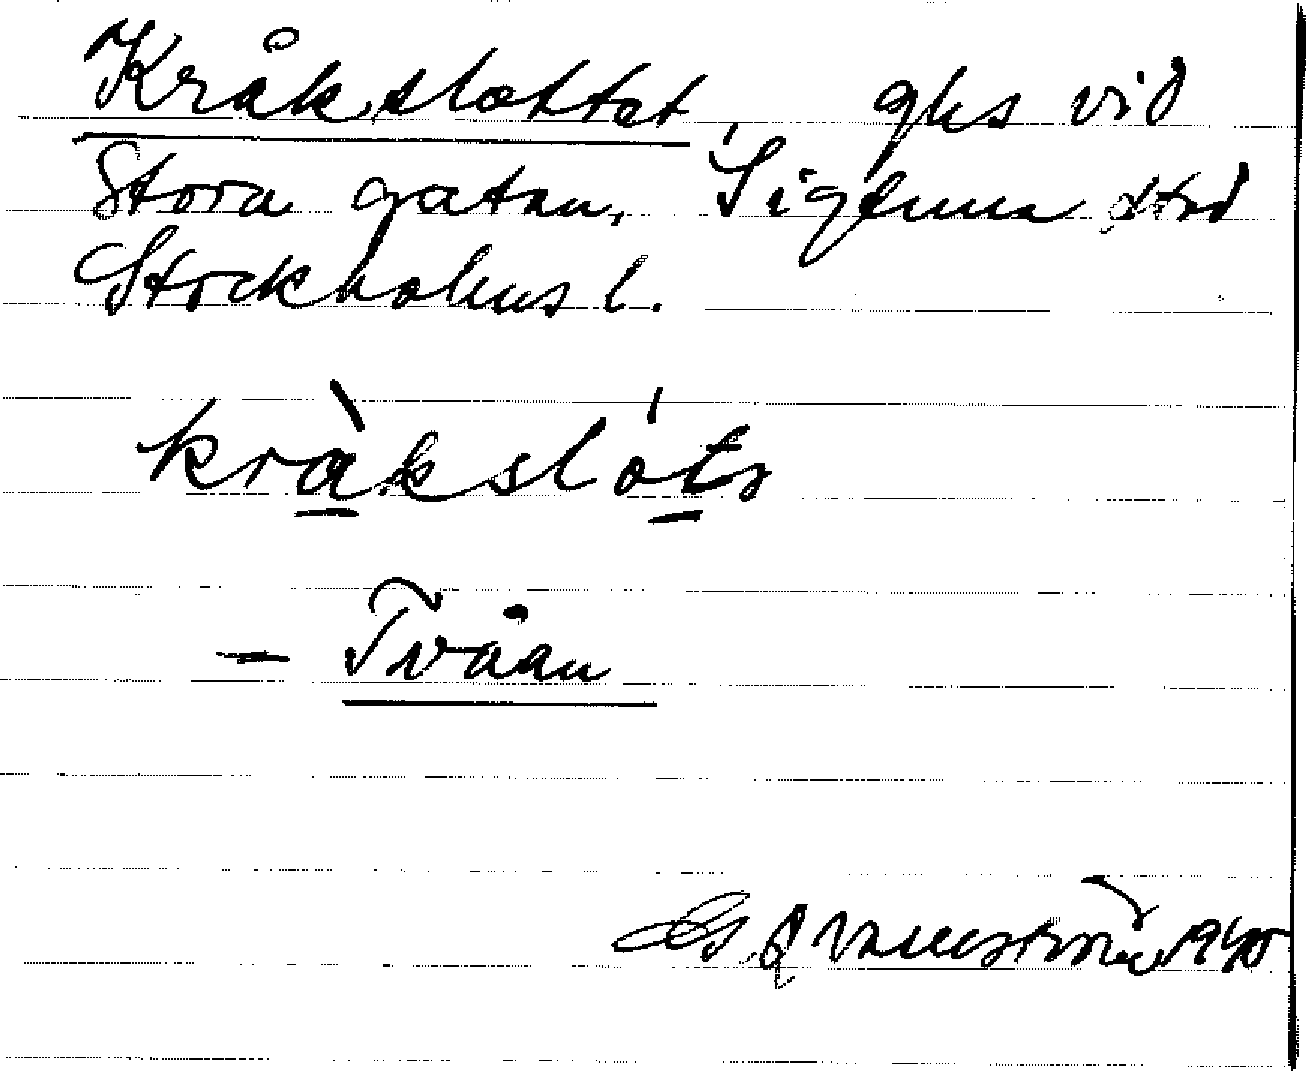 Kråkslottet, ghs vid
Stora gatan, Sigtuna stad
Stockholms l.
kràkslóts
– Tvåan
1940